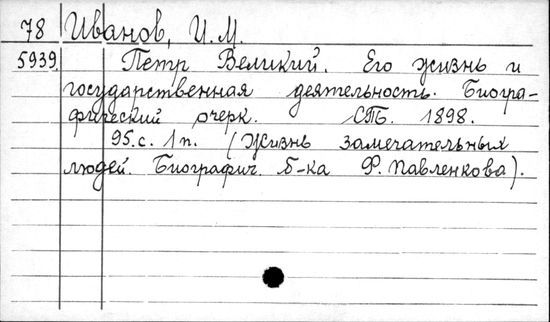 78 Иванов, И.М.
5939 Петр Великий. Его жизнь и
государственная деятельность. Биогра-
фический очерк. СПБ. 1898.
95.с. 1 п. (Жизнь замечательных
людей. Биографич. б-ка Ф. Павленкова).